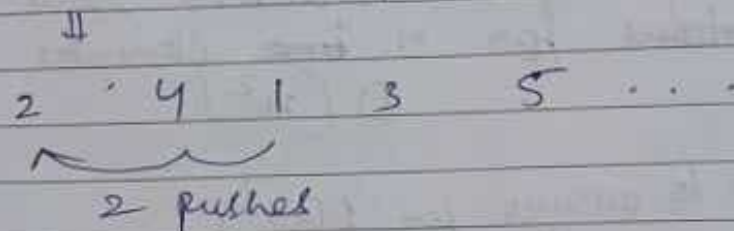 ⇓
2 4 1 3 5 . . .
2 pushes